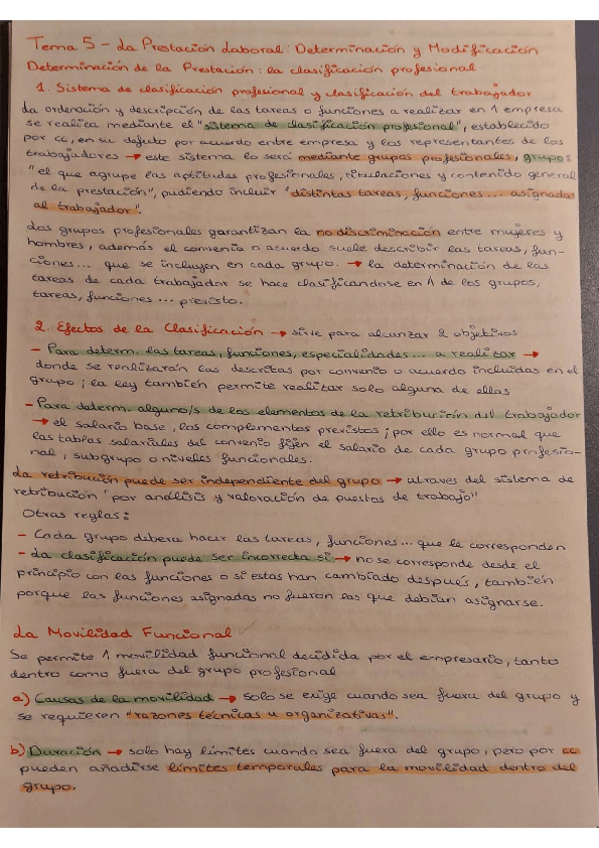 Tema 5 - La Prestación Laboral: Determinación y Modificación
Determinación de la Prestación: la clasificación profesional
1. Sistema de clasificación profesional y clasificación del trabajador
La ordenación y descripción de las tareas o funciones a realizar en 1 empresa
se realiza mediante el "sistema de clasificación profesional", establecido
por cc, en su defecto por acuerdo entre empresa y los representantes de los
trabajadores → este sistema lo será mediante grupos profesionales, grupo:
"el que agrupe las aptitudes profesionales, titulaciones y contenido general
de la prestación", pudiendo incluir "distintas tareas, funciones... asignadas
al trabajador".
Los grupos profesionales garantizan la no discriminación entre mujeres y
hombres, además el convenio o acuerdo suele describir las tareas, fun-
ciones... que se incluyen en cada grupo. → la determinación de las
tareas de cada trabajador se hace clasificandose en 1 de los grupos,
tareas, funciones ... previsto.
2. Efectos de la Clasificación → sirve para alcanzar 2 objetivos
- Para determ. las tareas, funciones, especialidades... a realizar →
donde se realizarán las descritas por convenio o acuerdo incluidas en el
grupo; la ley también permite realizar solo alguna de ellas
- Para determ. alguno/s de los elementos de la retribución del trabajador
→ el salario base, los complementos previstos; por ello es normal que
las tablas salariales del convenio fijen el salario de cada grupo profesio-
nal, subgrupo o niveles funcionales.
La retribución puede ser independiente del grupo → através del sistema de
retribución "por análisis y valoración de puestos de trabajo"
Otras reglas:
- Cada grupo debera hacer las tareas, funciones... que le corresponden
- La clasificación puede ser incorrecta si → no se corresponde desde el
principio con las funciones o si estas han cambiado después, también
porque las funciones asignadas no fueron las que debían asignarse.
La Movilidad Funcional
Se permite 1 movilidad funcional decidida por el empresario, tanto
dentro como fuera del grupo profesional
a) Causas de la movilidad → solo se exige cuando sea fuera del grupo y
se requieren "razones técnicas u organizativas".
b) Duración → solo hay límites cuando sea fuera del grupo, pero por cc
pueden añadirse límites temporales para la movilidad dentro del
grupo.